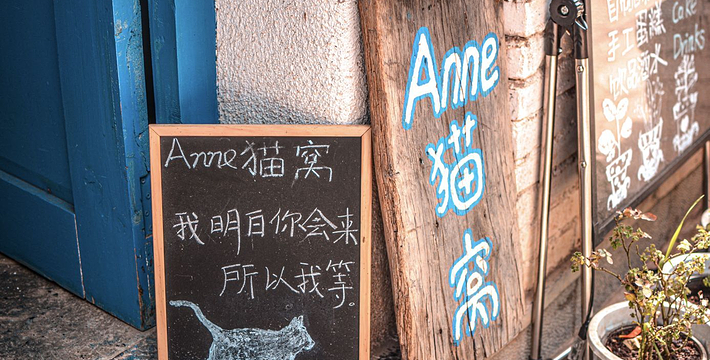 Anne猫窝
我明白你会来
所以我等。
Anne
猫
窝
手工蛋糕
Cake
Drinks